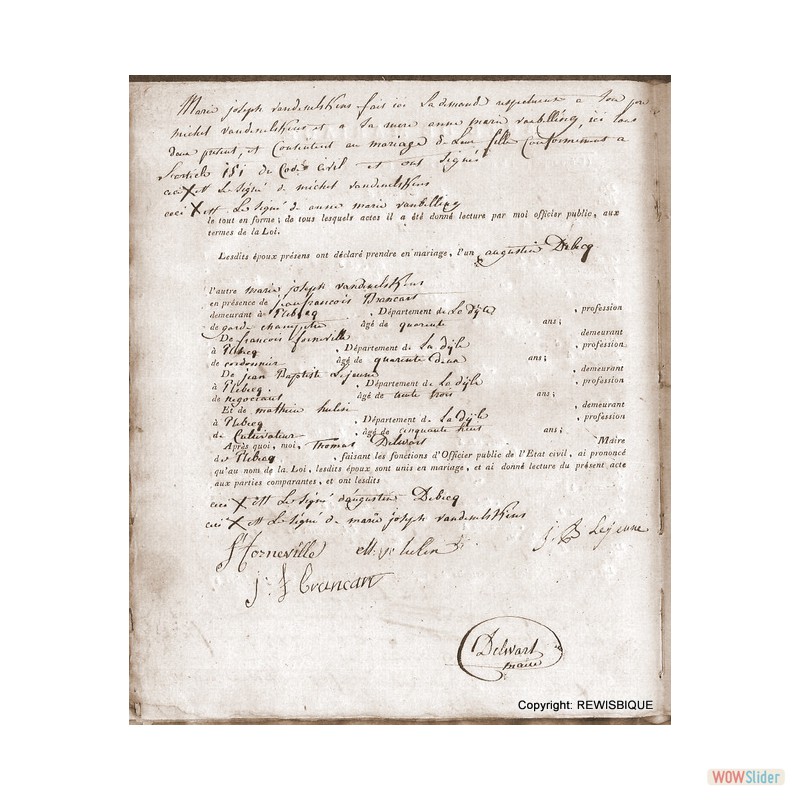 Marie joseph vandenelskens fait ici la demande respectueuse a son pere
michel vandenelskens et a sa mere anne marie vanbilling, ici tous
deux present, et Consentent au mariage de Leur fille Conformement a
L'article 151 du Code Civil et ont Signés
ceci X est Le Signé de michel vandenelskens
ceci X est Le Signé de anne marie vanbilling
le tout en forme; de tous lesquels actes il a été donné lecture par moi officier public, aux
termes de la Loi.
Lesdits époux présens ont déclaré prendre en mariage, l'un augustin Debecq
l'autre marie joseph vandenelskens
en présence de jean francois Brancart
demeurant à Plebecq , Département de La dyle , profession
de garde champetre âgé de quarente ans;
De francois forneville demeurant
à Plebecq , Département de La dyle , profession
de cordonnier âgé de quarente deux ans;
De jean Baptiste Lejeune , demeurant
à Plebecq , Département de La dyle , profession
de negociant âgé de trente trois ans;
Et de mathieu hulin , demeurant
à Plebecq , Département de La dyle , profession
de Cultivateur , âgé de cinquante ans;
Après quoi, moi, Thomas Delwart Maire
de Plebecq , faisant les fonctions d'Officier public de l'Etat civil, ai prononcé
qu'au nom de la Loi, lesdits époux sont unis en mariage, et ai donné lecture du présent acte
aux parties comparantes, et ont lesdits
ceci X est Le Signé d'augustin Debecq
ceci X est Le Signé de marie joseph vandenelskens
f forneville hulin j. B Lejeune
j. f Brancart
Delwart
maire
Copyright: REWISBIQUE
WOWSlider